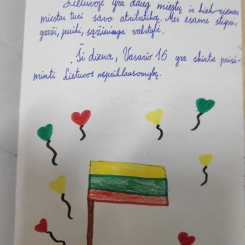 Lietuvoje yra daug miestų ir kiekvienas
miestas turi savo atributiką. Mes esame stiprūs,
graži, puiki, sąžininga valstybė.
Ši diena, Vasario 16 yra skirta prisi-
minti Lietuvos nepriklausomybę.